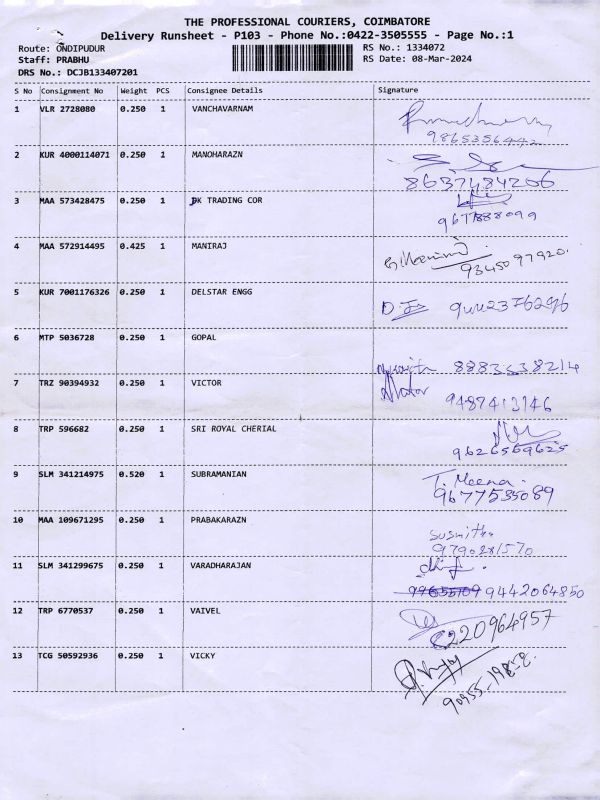 THE PROFESSIONAL COURIERS, COIMBATORE
Delivery Runsheet - P103 - Phone No.:0422-3505555 - Page No.:1
Route: ONDIPUDUR RS No.: 1334072
Staff: PRABHU RS Date: 08-Mar-2024
DRS No.: DCJB133407201
S No Consignment No Weight PCS Consignee Details Signature
1 VLR 2728080 0.250 1 VANCHAVARNAM
9865356442
2 KUR 4000114071 0.250 1 MANOHARAZN
8637484206
3 MAA 573428475 0.250 1 DK TRADING COR
4 MAA 572914495 0.425 1 MANIRAJ
9345097920
5 KUR 7001176326 0.250 1 DELSTAR ENGG
6 MTP 5036728 0.250 1 GOPAL
8883538214
7 TRZ 90394932 0.250 1 VICTOR
9487413146
8 TRP 596682 0.250 1 SRI ROYAL CHERIAL
9626569625
9 SLM 341214975 0.520 1 SUBRAMANIAN
T. Meena.
9677535089
10 MAA 109671295 0.250 1 PRABAKARAZN
Susmitha
9790281570
11 SLM 341299675 0.250 1 VARADHARAJAN
9442064850
12 TRP 6770537 0.250 1 VAIVEL
220964957
13 TCG 50592936 0.250 1 VICKY